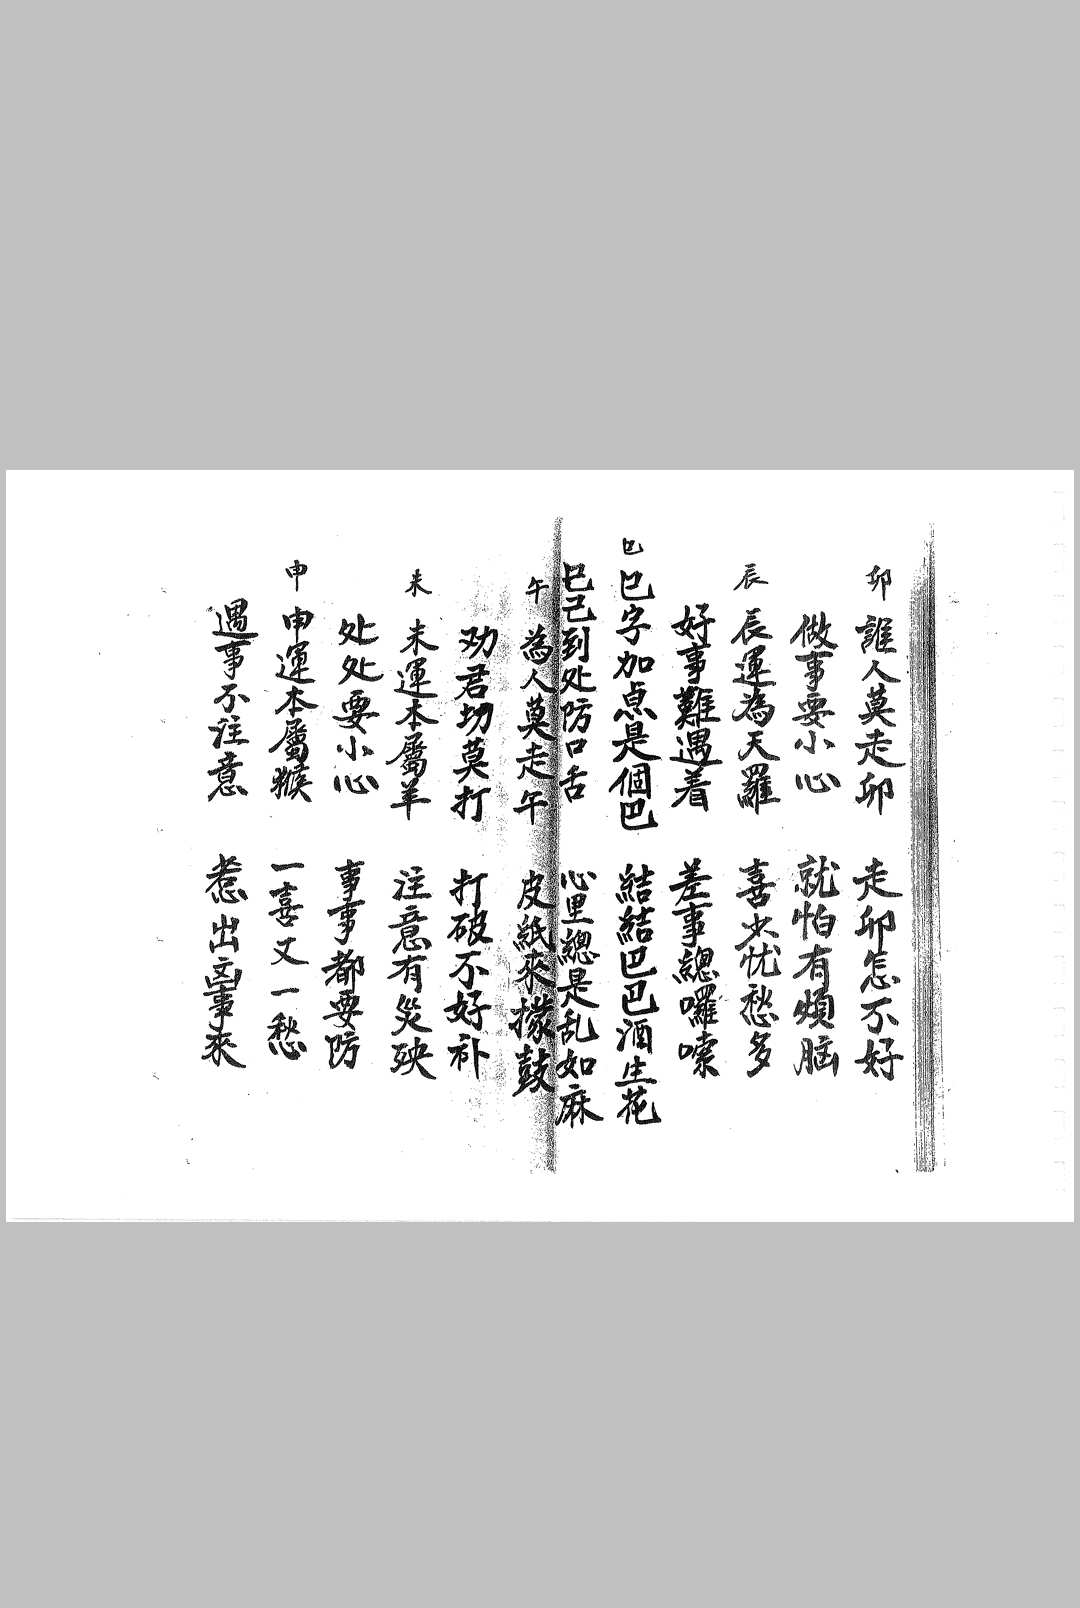 卯 誰人莫走卯 走卯怎不好
做事要小心 就怕有煩脑
辰 辰運為天羅 喜少忧愁多
好事難遇着 差事總囉嗦
巳 巳字加点是個巴 結結巴巴酒生花
巳己到处防口舌 心里總是乱如麻
午 為人莫走午 皮紙來擛鼓
劝君切莫打 打破不好补
未 未運本屬羊 注意有災殃
处处要小心 事事都要防
申 申運本屬猴 一喜又一愁
遇事不注意 惹出凶事來